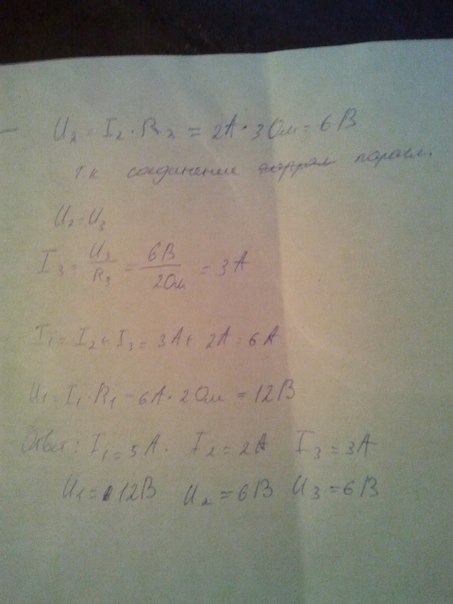 U₂ = I₂ · R₂ = 2А · 3 Ом = 6В
т.к соединение паралл.
U₂ = U₃
I₃ = U₃/R₃ = 6В/2Ом = 3А
I₁ = I₂ + I₃ = 3А + 2А = 6А
U₁ = I₁ · R₁ = 6А · 2Ом = 12В
Ответ: I₁ = 5А. I₂ = 2А I₃ = 3А
U₁ = 12В U₂ = 6В U₃ = 6В